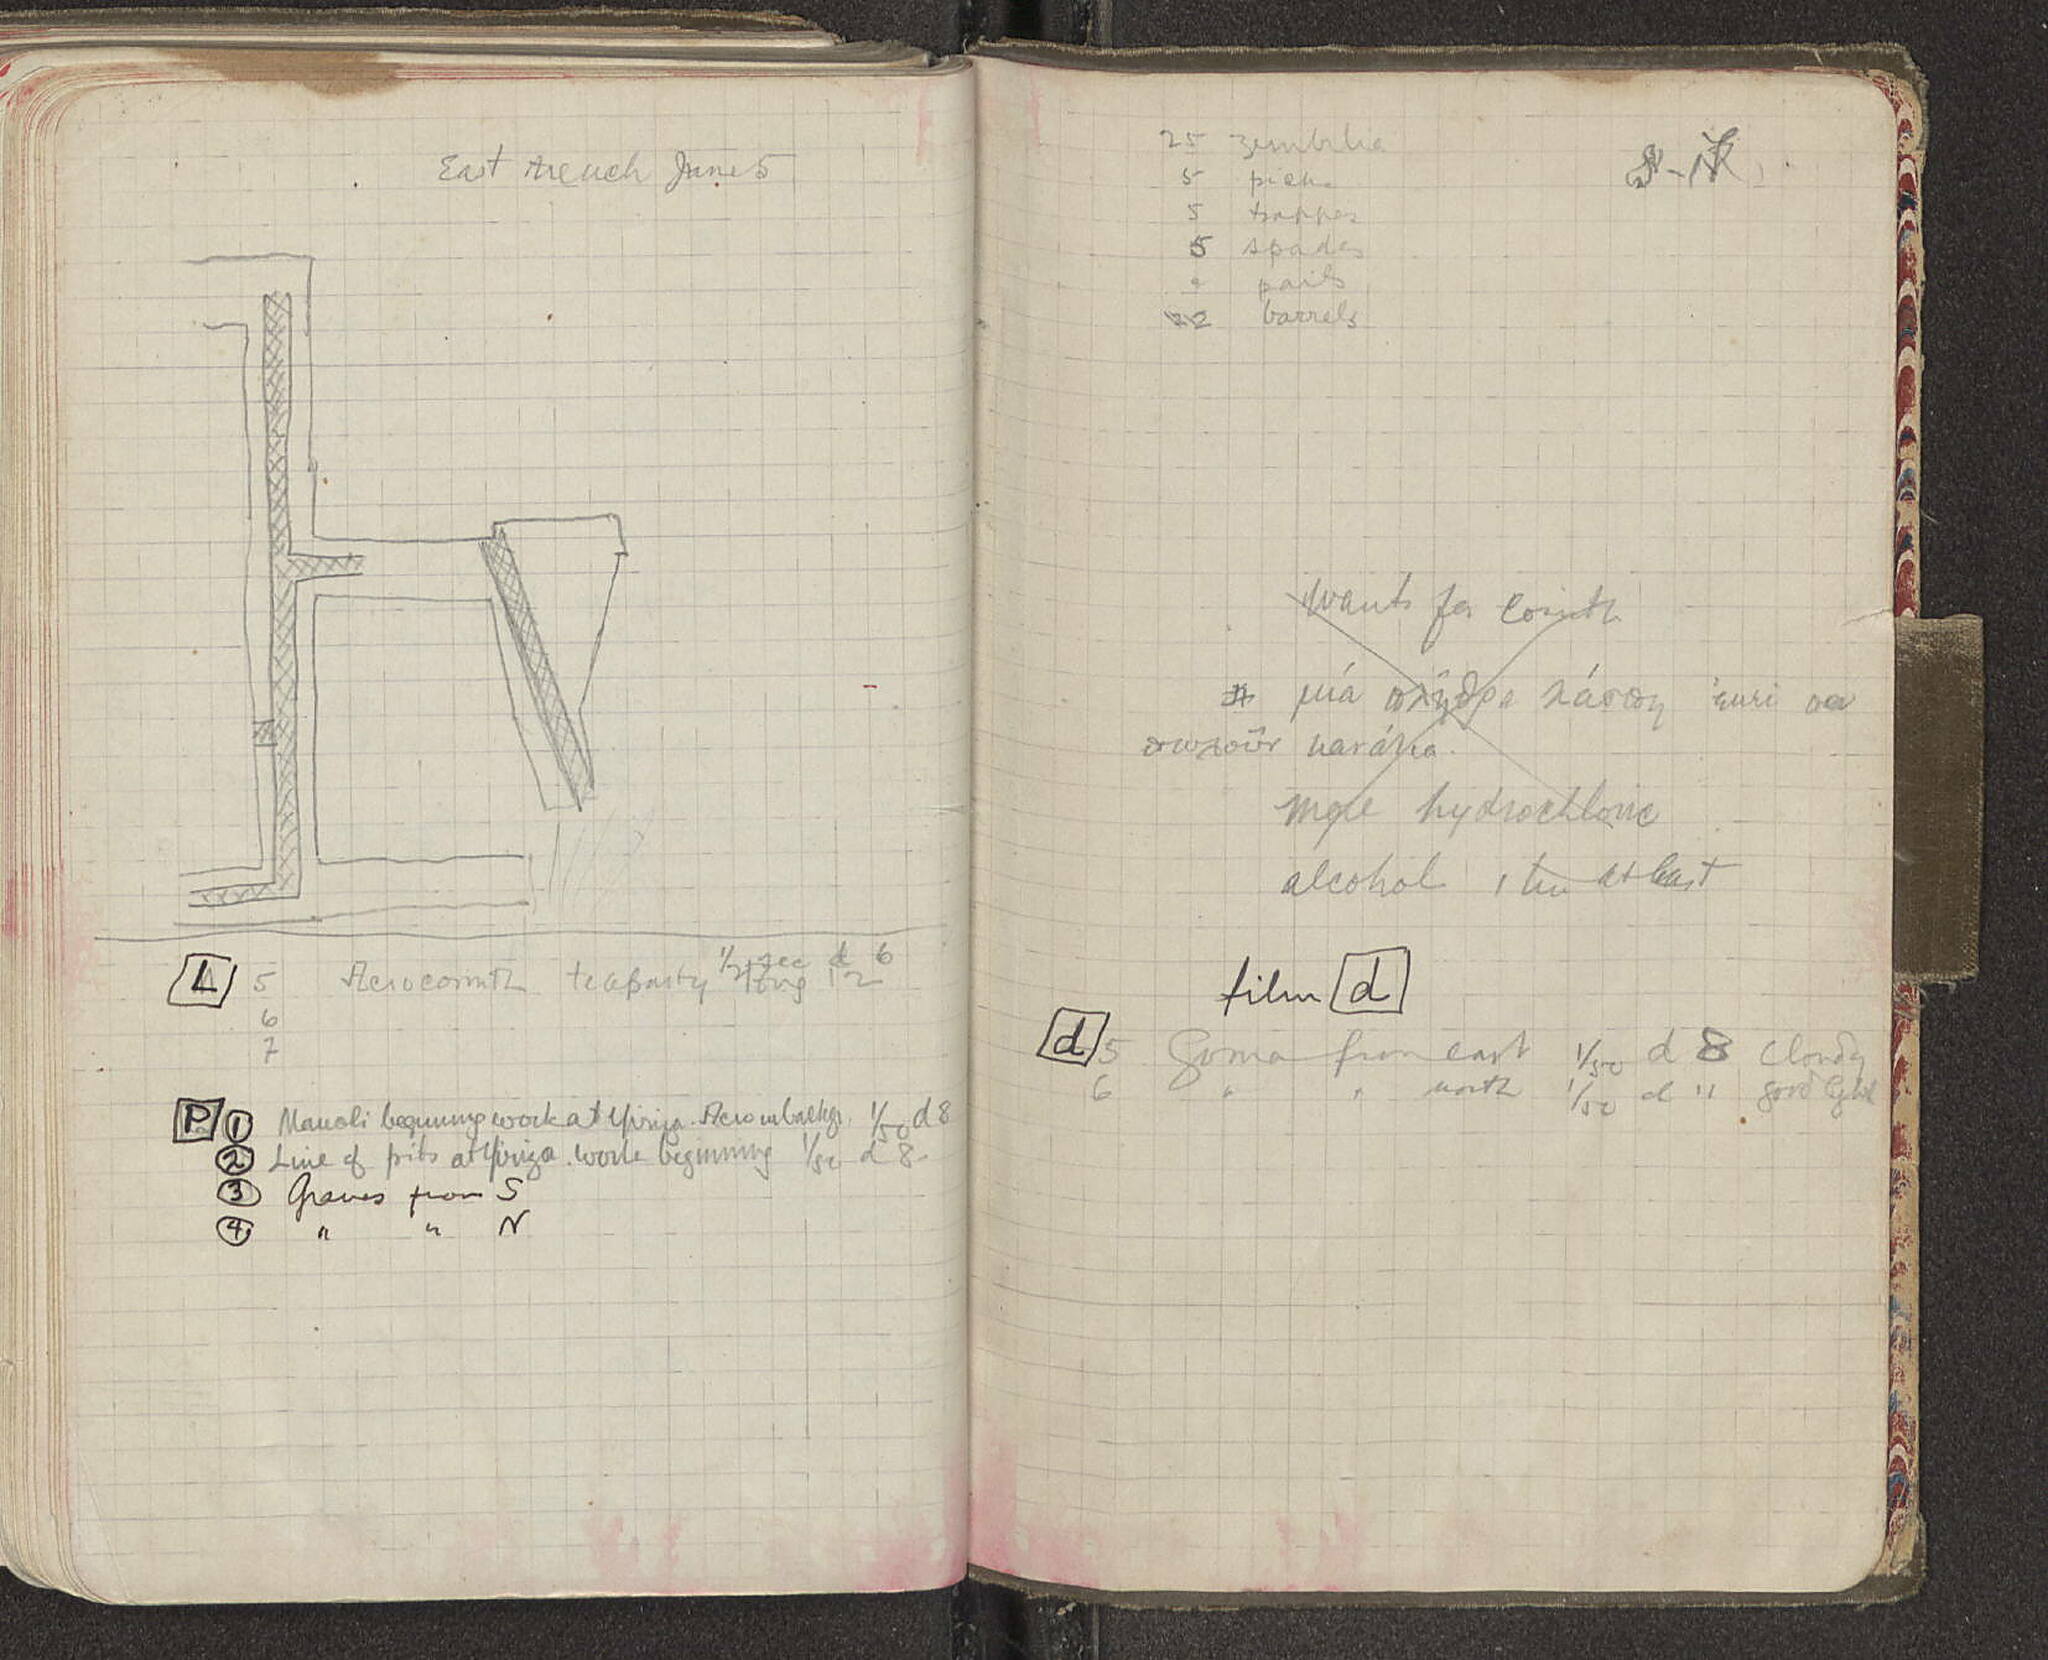 East trench June 5
L 5 Acrocorinth teaparty 1/2 sec d 6
long 12
6
7
P 1 Manoli beginning work at Yiriza. Acro in backgr. 1/50 d 8
2 Line of pits at Yiriza. work beginning 1/50 d 8.
3 Graves from S
4 " " N
25 zembilia
5 picks
5 trappes
5 spades
pails
barrels
wants for Corinth
μιά
more hydrochloric
alcohol 1 tin at least
film d
d 5 Gonia from east 1/50 d 8 cloudy
6 " " north 1/50 d " good light